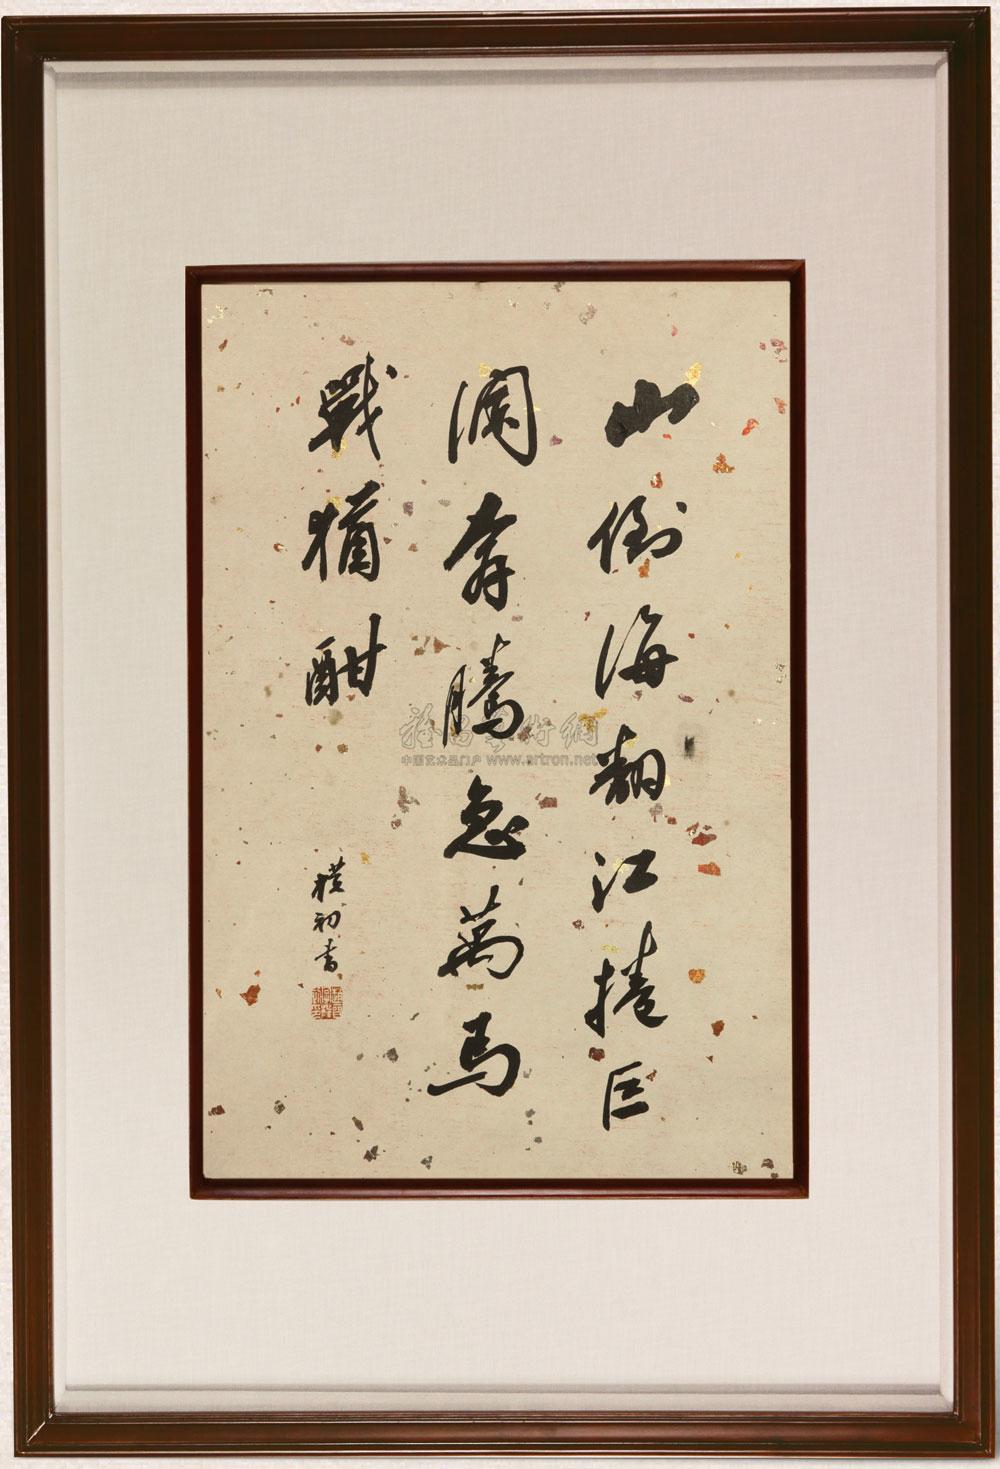 山倒海翻江捲巨
澜奔腾急萬马
戰猶酣
樸初书
雅昌藝術網
中国艺术品门户 www.artron.net